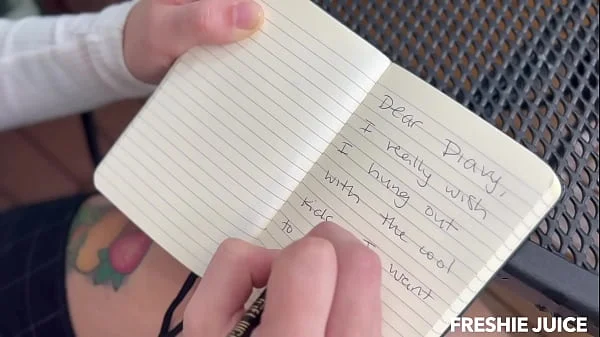 Dear Diary,
I really wish
I hung out
with the cool
kids. I want
to
FRESHIE JUICE